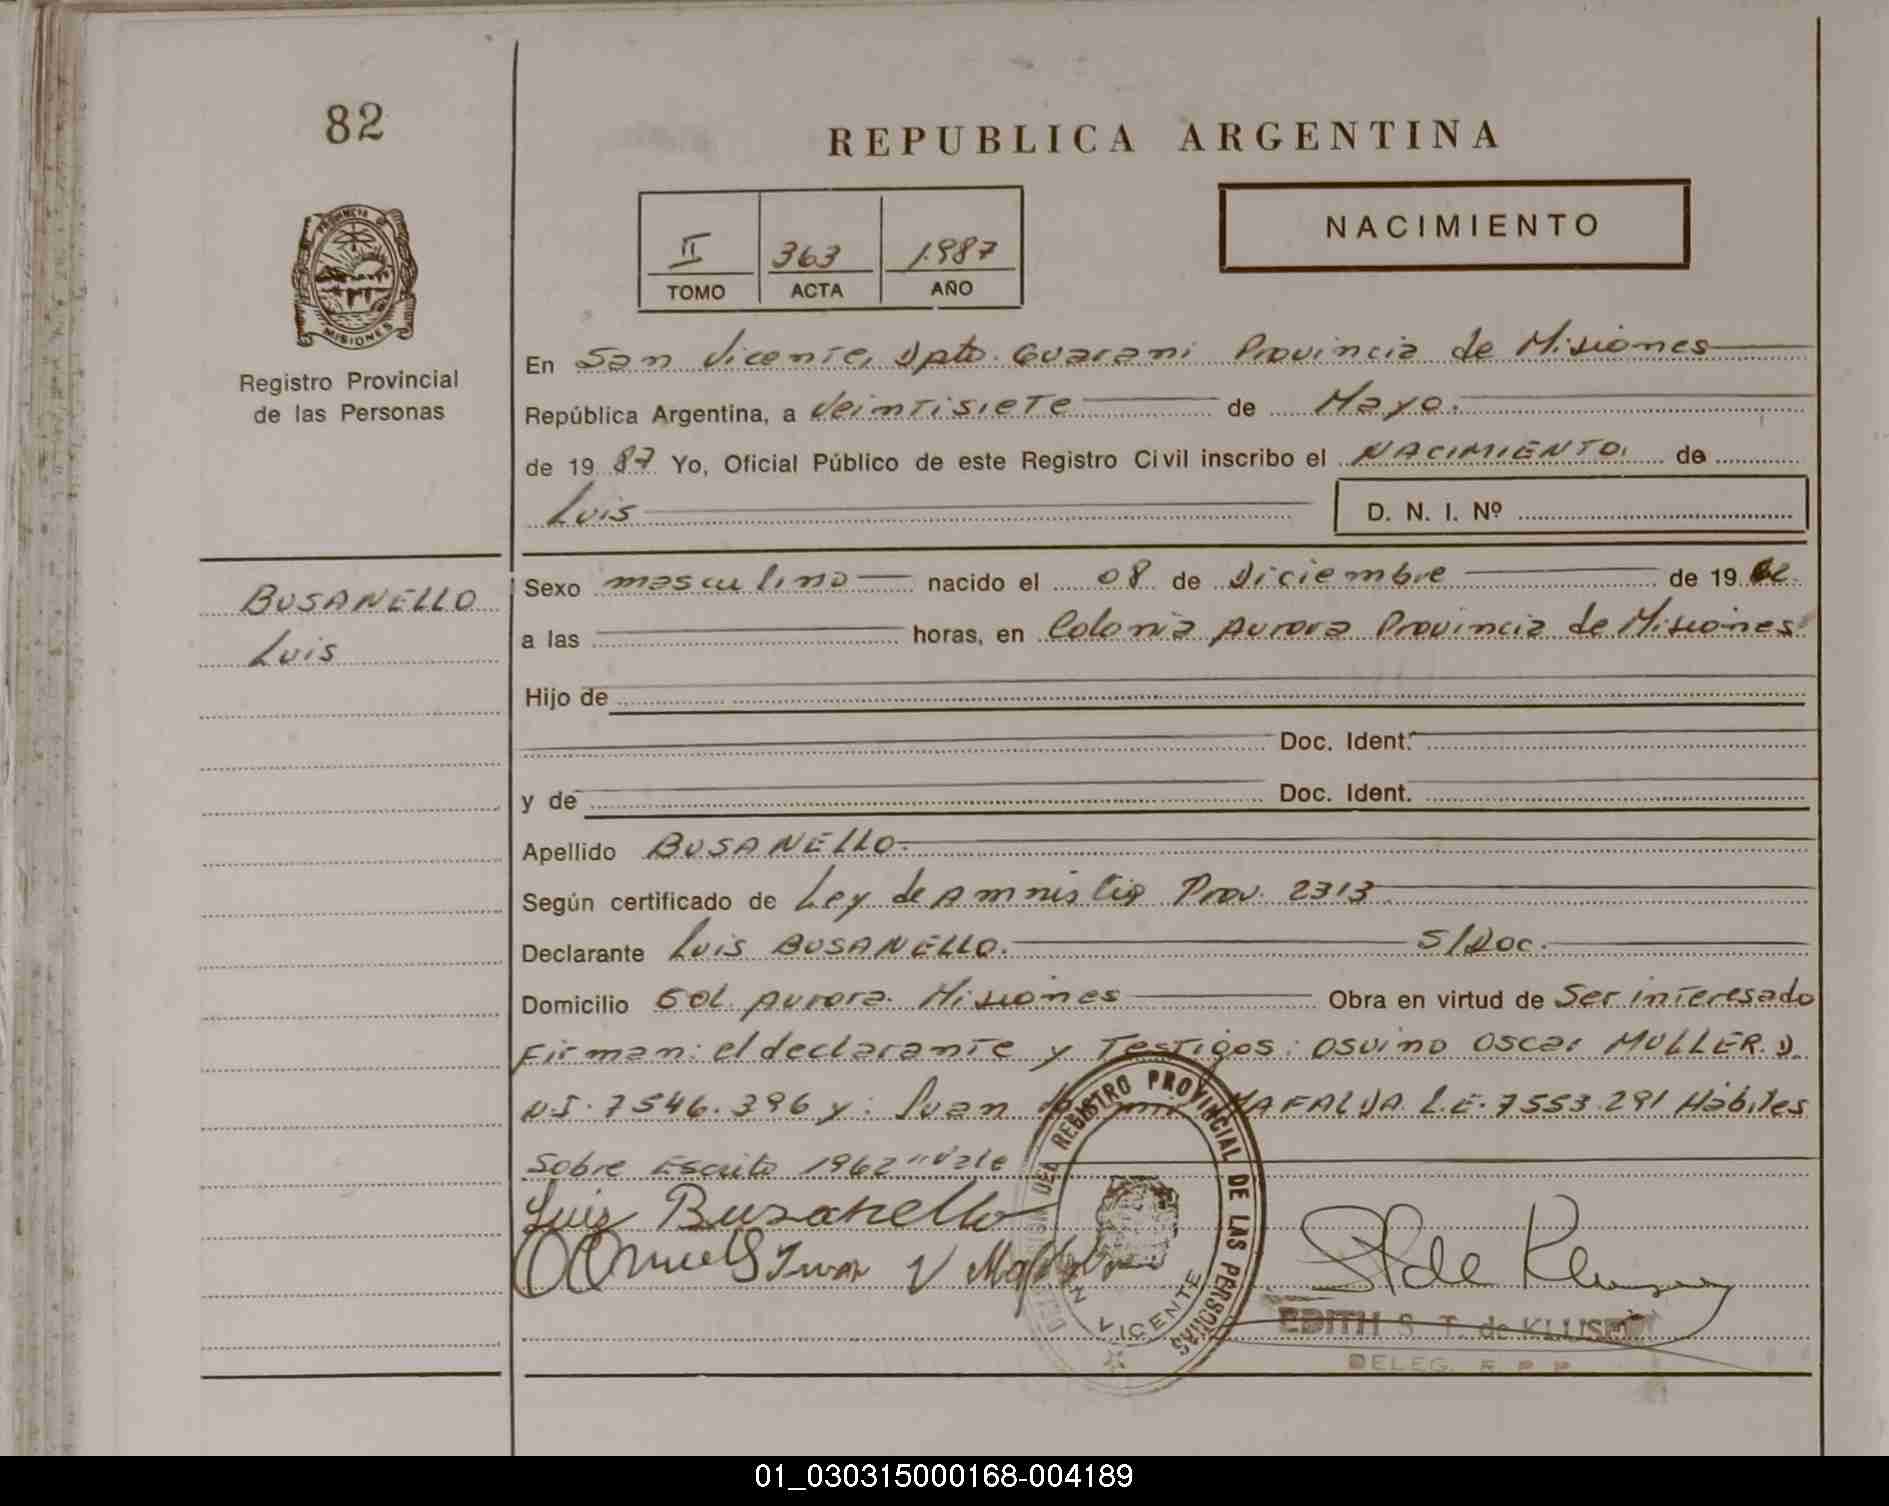 82
REPUBLICA ARGENTINA
PROVINCIA DE
MISIONES
Registro Provincial
de las Personas
II 363 1.987
TOMO ACTA AÑO
NACIMIENTO
En San Vicente, Dpto. Guarani Provincia de Misiones
República Argentina, a Veintisiete de Mayo.
de 19 87 Yo, Oficial Público de este Registro Civil inscribo el NACIMIENTO. de
Luis
D. N. I. Nº
BUSANELLO
Luis
Sexo masculino nacido el 08 de Diciembre de 19 62
a las horas, en Colonia Aurora Provincia de Misiones
Hijo de
Doc. Ident.
y de Doc. Ident.
Apellido BUSANELLO.
Según certificado de Ley de Amnistia Prov. 2313
Declarante Luis BUSANELLO. S/Doc.
Domicilio Col. Aurora. Misiones Obra en virtud de Ser interesado
Firman: el declarante y Testigos: Osvino Oscar MULLER. D.
N.I. 7546.396 y: Juan MAFALDA. L.E. 7553.291 Hábiles
Sobre Escrito 1962 "Vale
Luiz Busanello
Juan V
DEL REGISTRO PROVINCIAL DE LAS PERSONAS
VICENTE
EDITH S. T. de KLUSE
DELEG. R P P
01_030315000168-004189